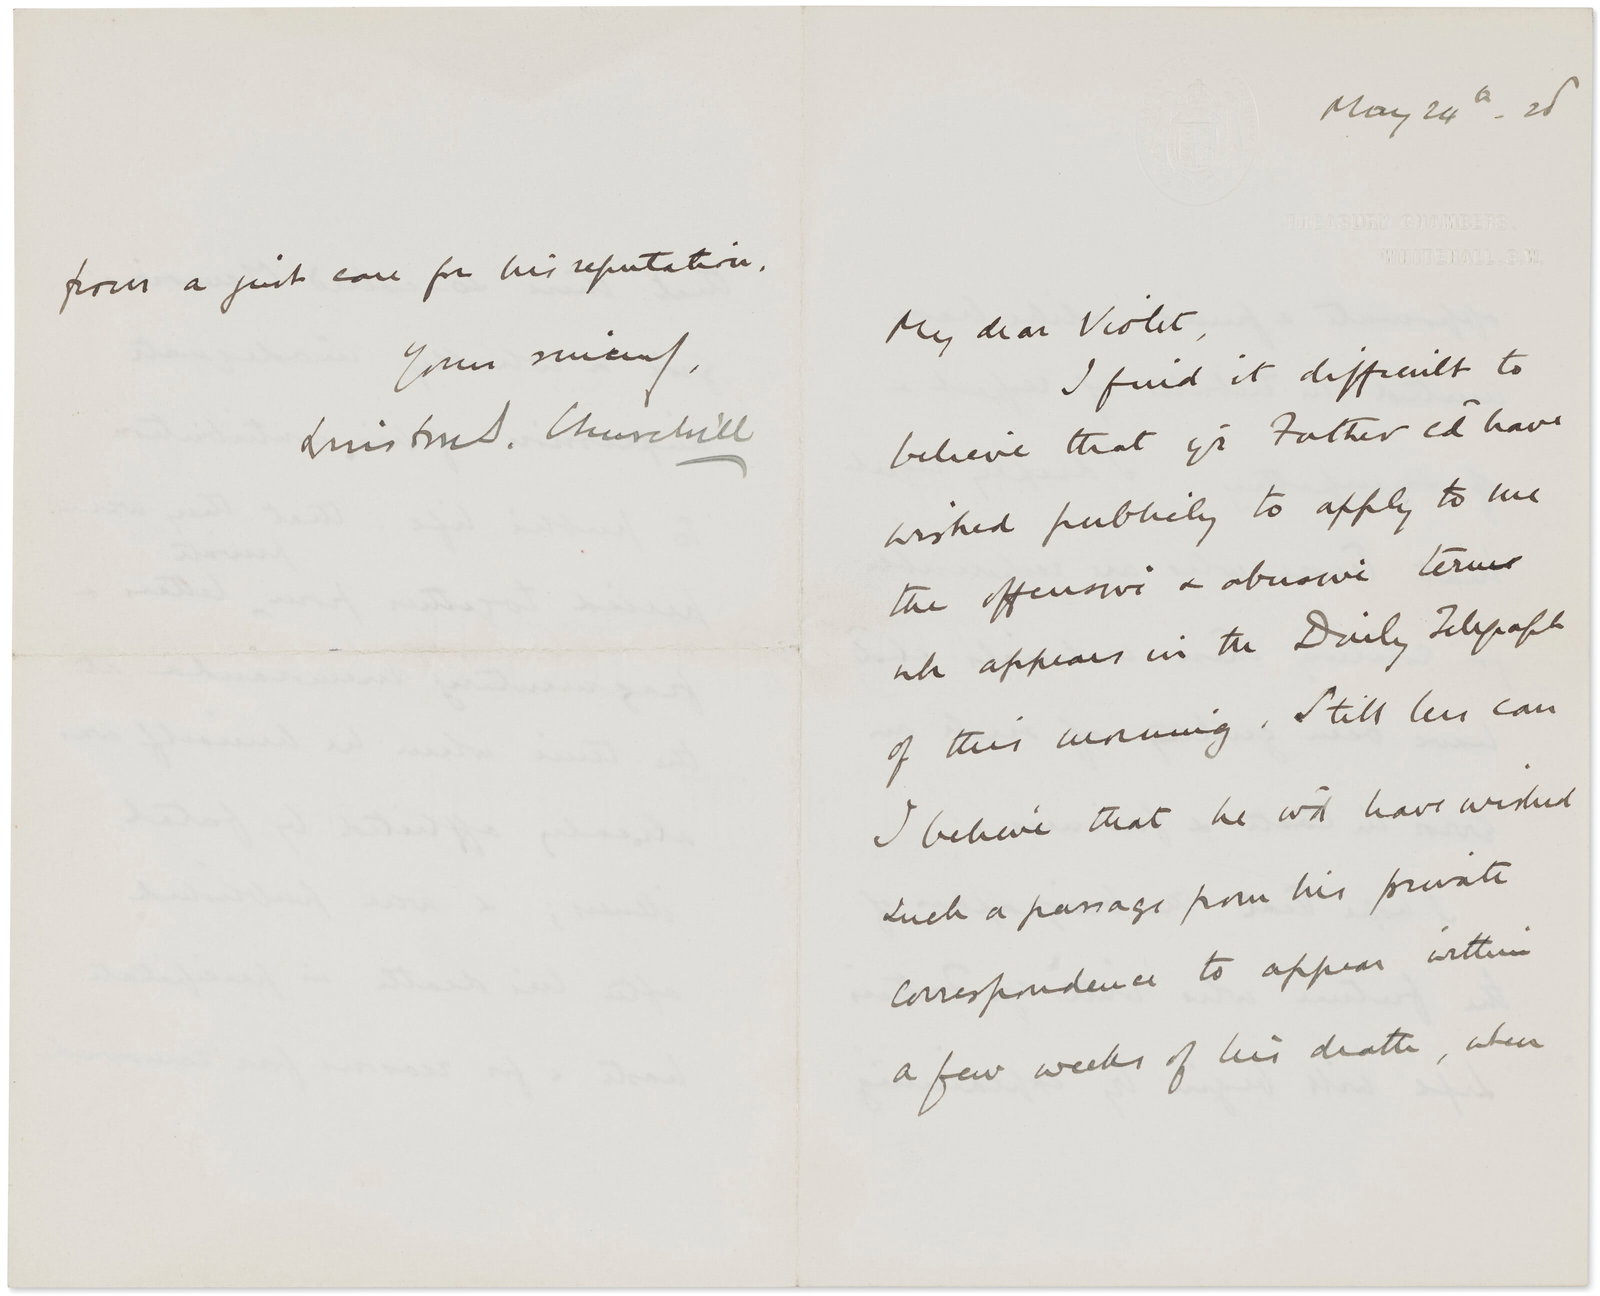 May 24th - 28
TREASURY CHAMBERS.
WHITEHALL. S.W.
My dear Violet,
I find it difficult to
believe that yr Father cd have
wished publicly to apply to me
the offensive & abusive terms
wh appears in the Daily Telegraph
of this morning. Still less can
I believe that he wd have wished
such a passage from his private
correspondence to appear within
a few weeks of his death, when
from a just care for his reputation.
Yours sincerely,
Winston S. Churchill